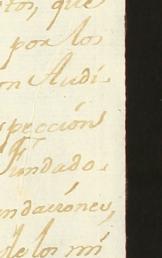 tos, que
por los
on Audi-
speccion
Fundado-
ndaciones,
de los mi